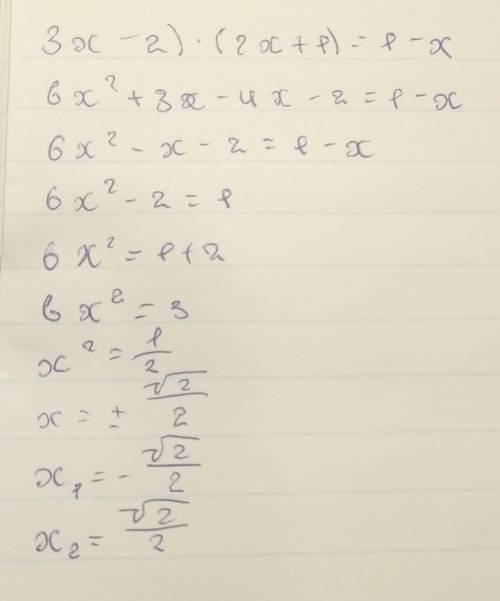 3x - 2) · (2x + 1) = 1 - x
6x² + 3x - 4x - 2 = 1 - x
6x² - x - 2 = 1 - x
6x² - 2 = 1
6x² = 1 + 2
6x² = 3
x² = 1/2
x = ± √2/2
x₁ = - √2/2
x₂ = √2/2